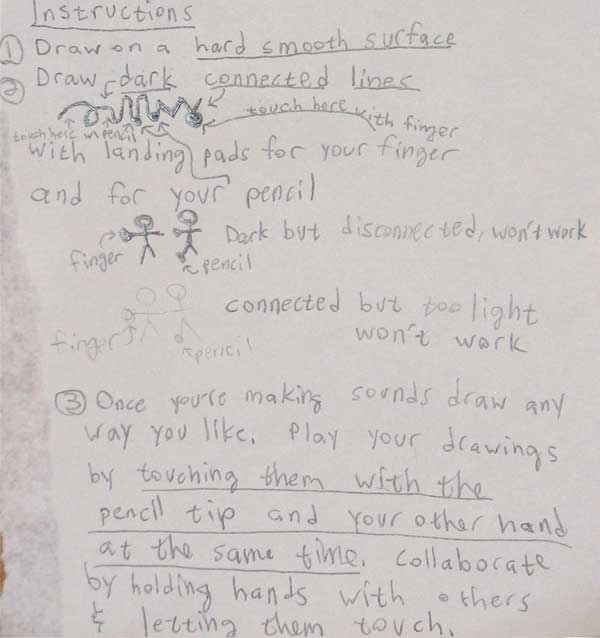 Instructions
① Draw on a hard smooth surface
② Draw dark connected lines
touch here with finger
touch here w pencil
with landing pads for your finger
and for your pencil
Dark but disconnected, won't work
finger
pencil
connected but too light
won't work
finger
pencil
③ Once you're making sounds draw any
way you like. Play your drawings
by touching them with the
pencil tip and your other hand
at the same time. Collaborate
by holding hands with others
& letting them touch.